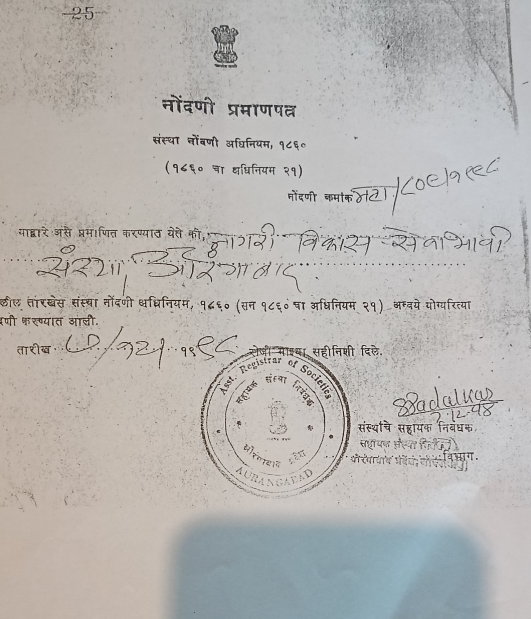 25
नोंदणी प्रमाणपत्र
संस्था नोंदणी अधिनियम, १८६०
(१८६० चा अधिनियम २१)
नोंदणी क्रमांक महा/८०९/१९९८
याद्वारे असे प्रमाणित करण्यात येते की, नागरी विकास सेवाभावी
संस्था, औरंगाबाद.
तारखेस संस्था नोंदणी अधिनियम, १८६० (सन १८६० चा अधिनियम २१) अन्वये योग्यरित्या
करण्यात आली.
तारीख १९९८ रोजी माझ्या सहीनिशी दिले.
Asst. Registrar of Societies
सहायक संस्था निबंधक
औरंगाबाद
AURANGABAD
संस्थांचे सहायक निबंधक,
विभाग.